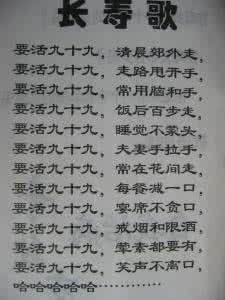 长寿歌
要活九十九，清晨郊外走，
要活九十九，走路甩开手，
要活九十九，常用脑和手，
要活九十九，饭后百步走，
要活九十九，睡觉不蒙头，
要活九十九，夫妻手拉手，
要活九十九，常在花间走，
要活九十九，每餐减一口，
要活九十九，宴席不贪口，
要活九十九，戒烟和限酒，
要活九十九，荤素都要有，
要活九十九，笑声不离口，
哈哈哈哈哈…………